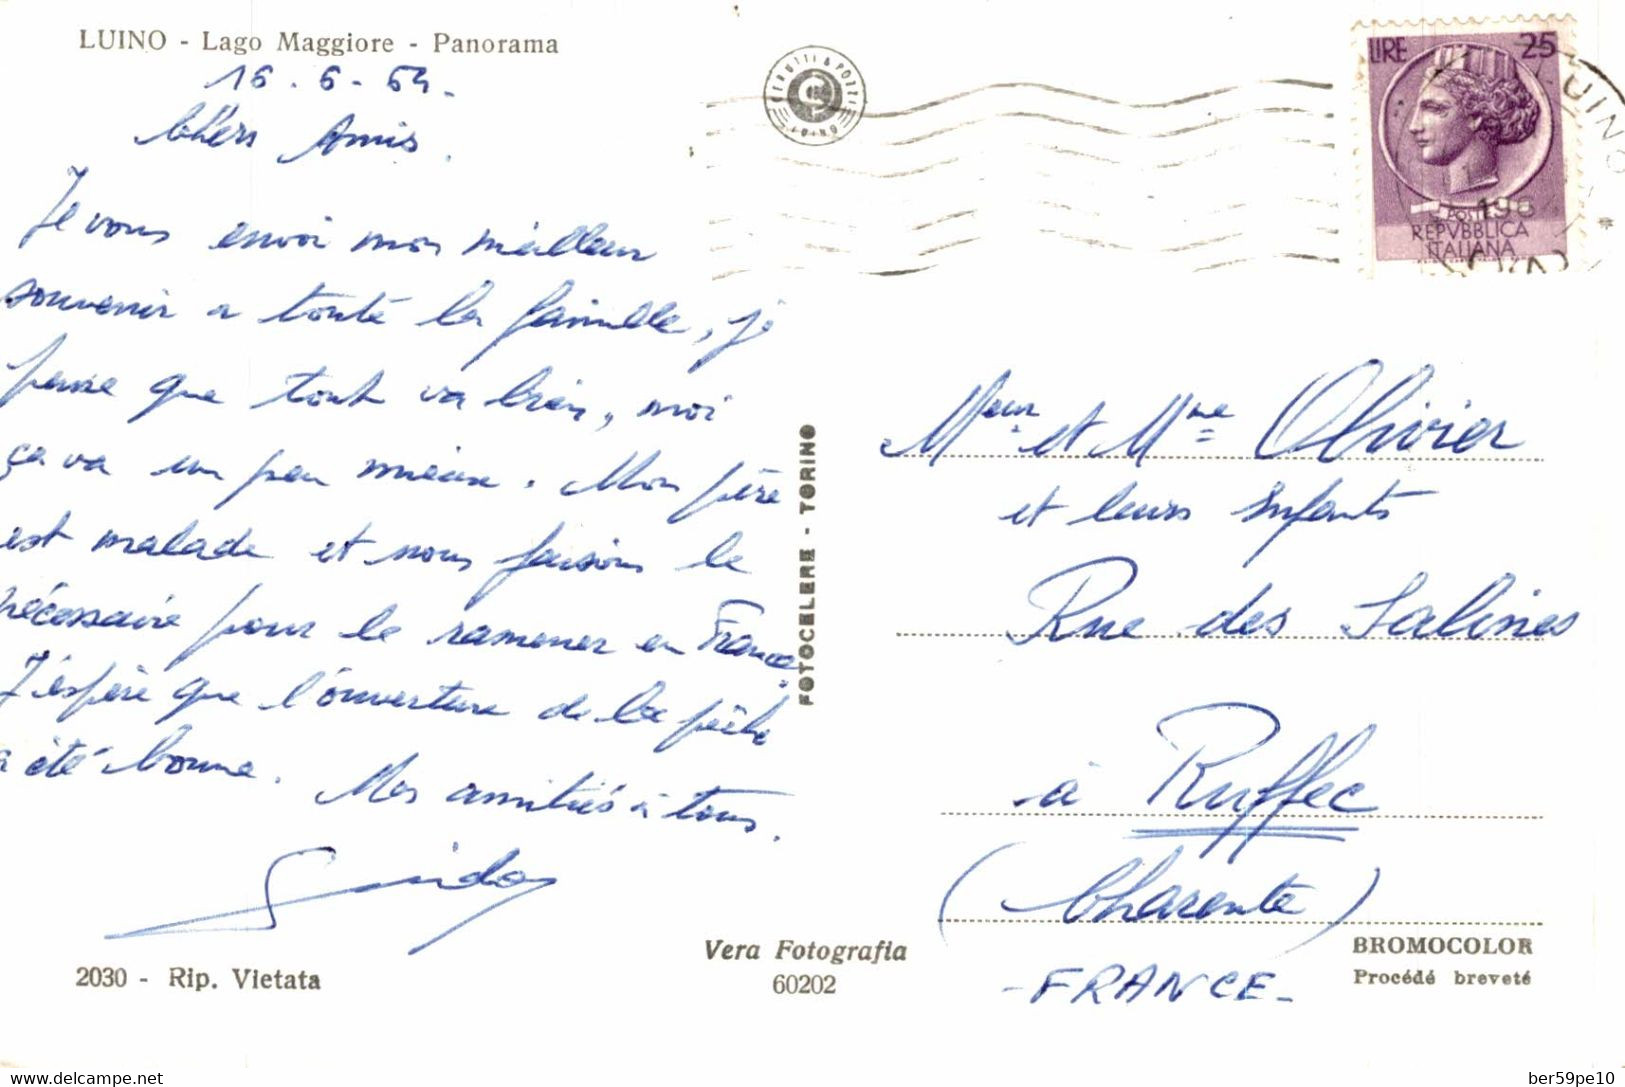 LUINO - Lago Maggiore - Panorama
16.6-64-
Chers Amis.
Je vous envoi mon meilleur
souvenir a toute la famille, je
pense que tout va bien, moi
ça va un peu mieux. Mon père
est malade et nous faisons le
nécessaire pour le ramener en France.
J'éspère que l'ouverture de la pêche
a été bonne. Mes amitiés à tous.
Guido
2030 - Rip. Vietata
CERUTTI & POZZI
LUINO
FOTOCELERE - TORINO
Vera Fotografia
60202
LIRE 25
POSTE
REPVBBLICA
ITALIANA
LUINO
196
Meur et Mme Olivier
et leurs enfants
Rue des Salines
à Ruffec
(Charente)
- FRANCE -
BROMOCOLOR
Procédé breveté
delcampe.net
ber59pe10